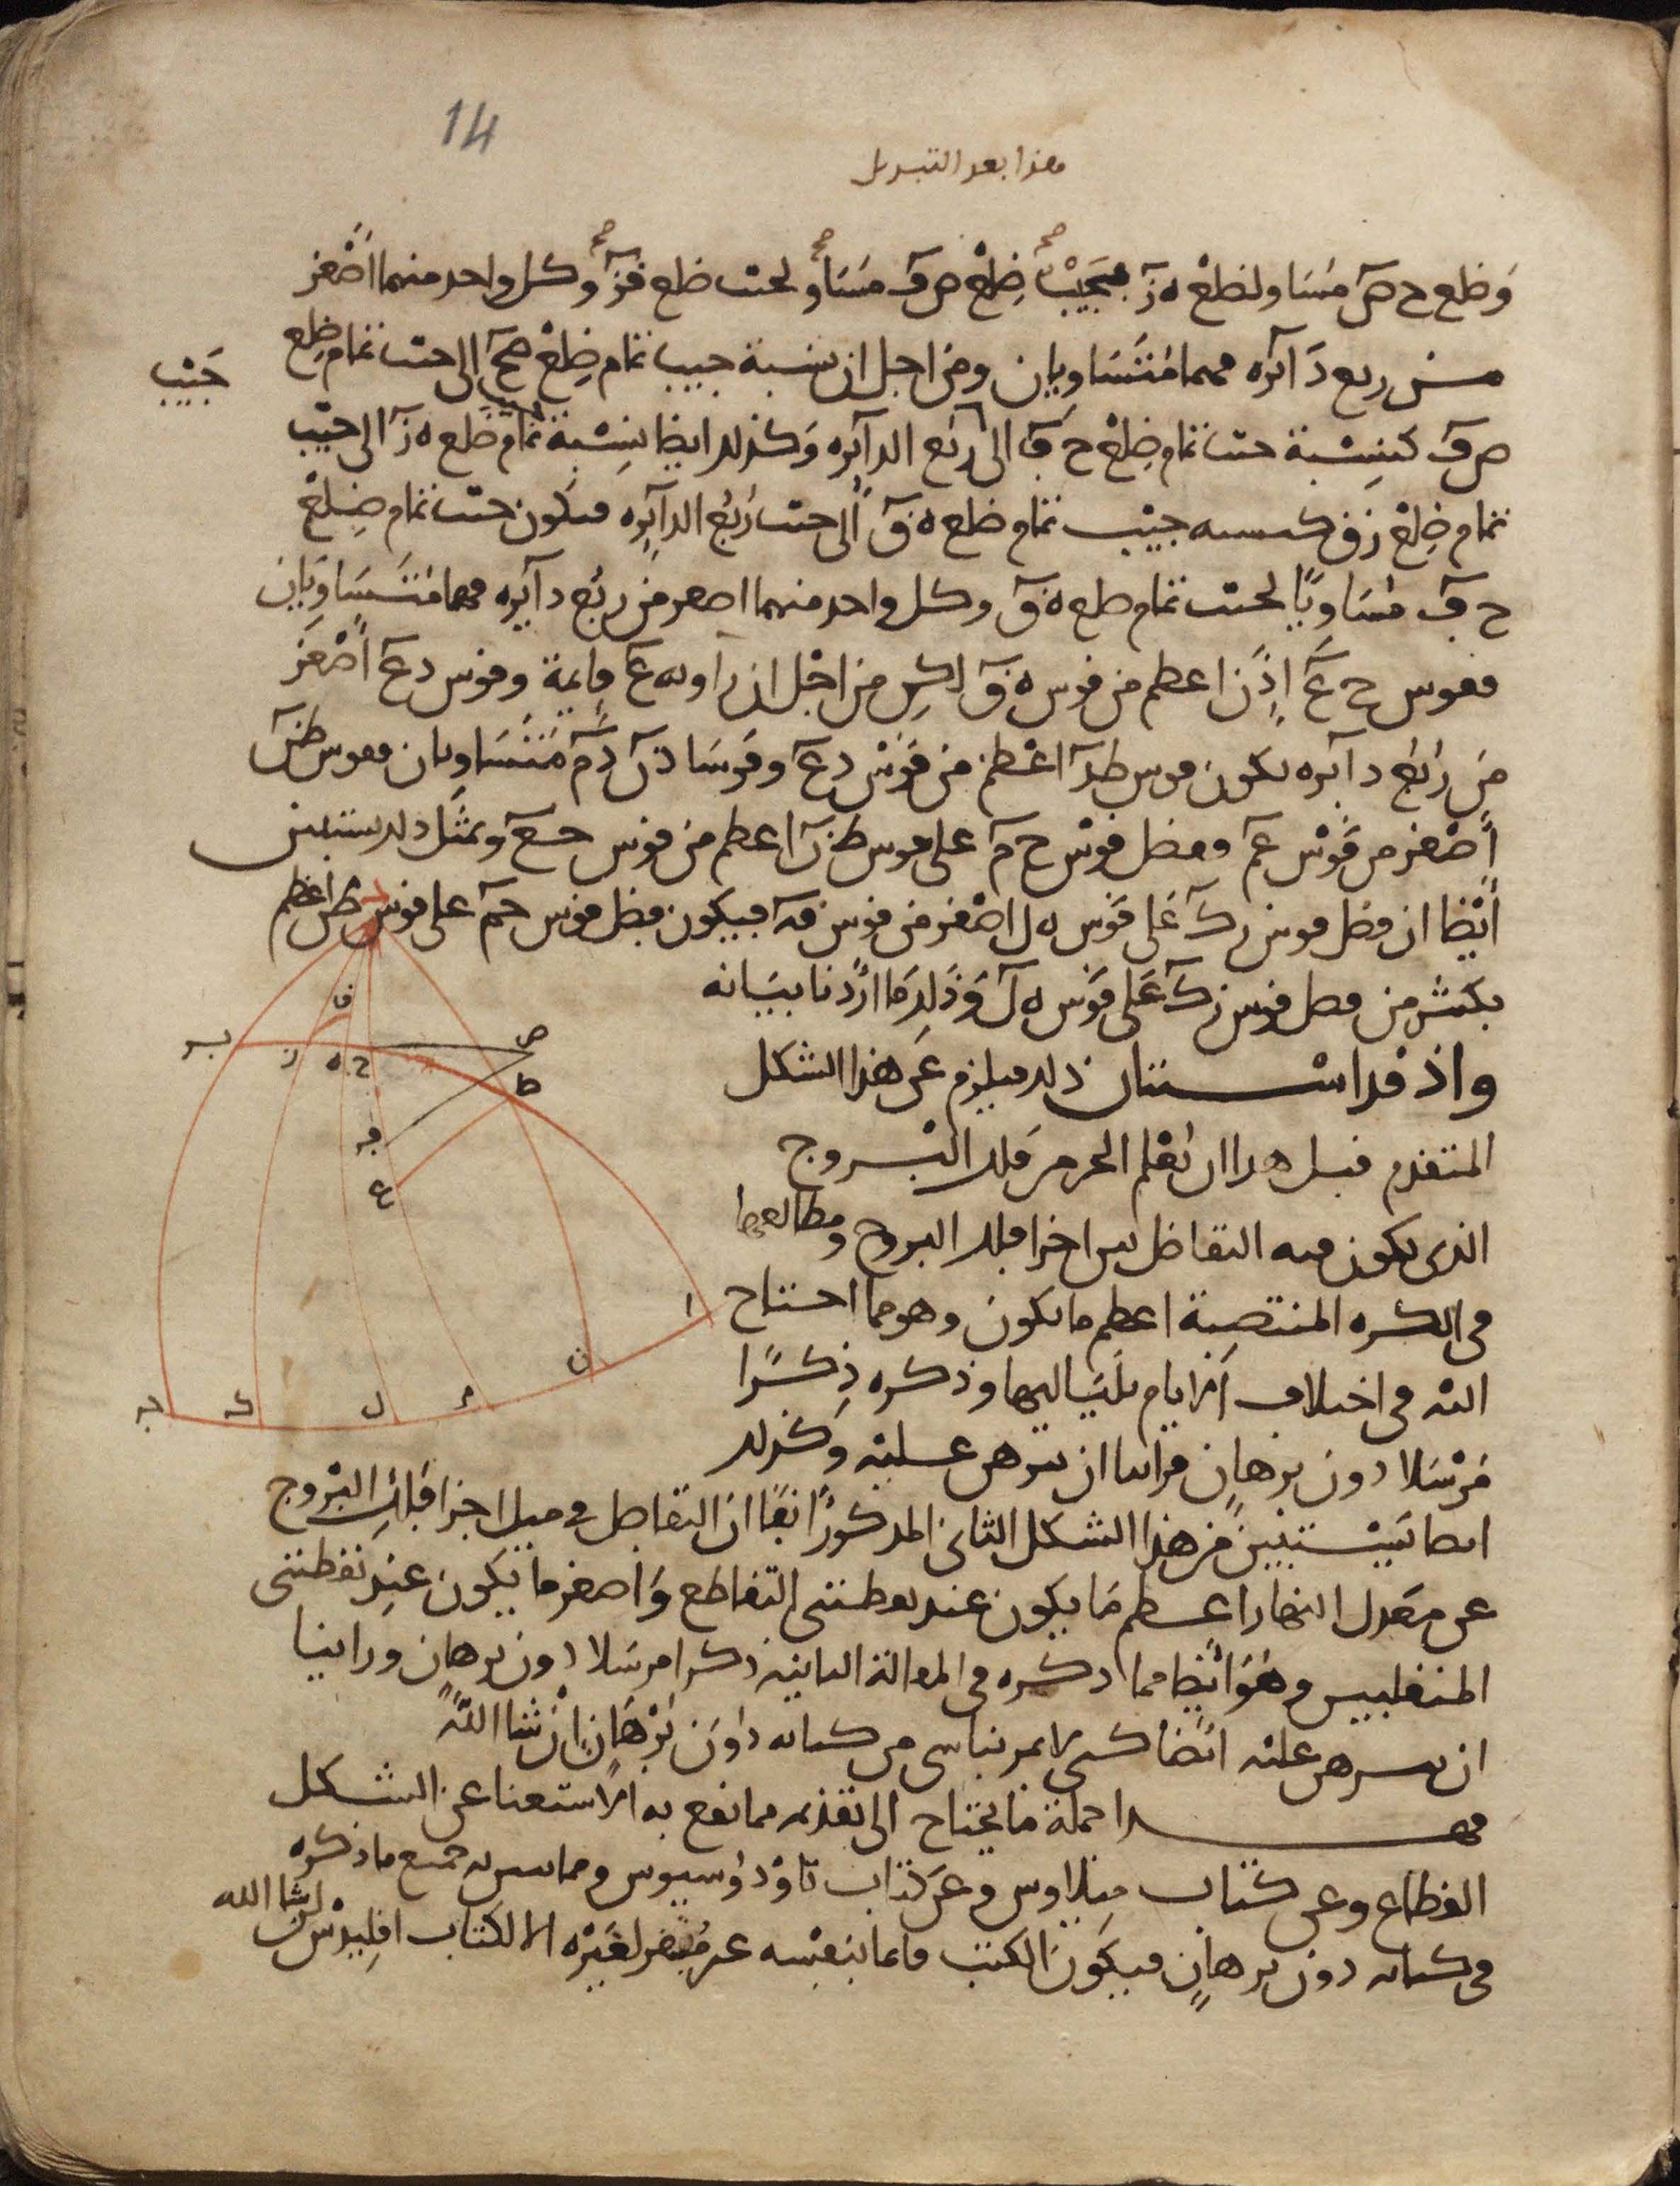 14
هذا بعد التبديل
وضلع ح ص مساو لضلع ه ز فجيب ضلع ص ق مساو لجيب ضلع ف ز وكل واحد منهما أصغر
من ربع دائره فهما متساويان ومن اجل ان نسبة جيب تمام ضلع ص ح الى جيب تمام ضلع
جيب
ص ق كنسبة جيب تمام ضلع ح ق الى ربع الدائره وكذلك ايضا نسبة تمام ضلع ه ز الى جيب
تمام ضلع ز ف كنسبه جيب تمام ضلع ه ف الى جيب ربع الدائره فيكون جيب تمام ضلع
ح ق مساويا لجيب تمام ضلع ه ف وكل واحد منهما اصغر من ربع دائره فهما متساويان
فقوس ح ع إذن اعظم من قوس ه ف لكن من اجل ان زاويه ع قايمة وقوس د ع أصغر
من ربع دائره يكون قوس ط د اعظم من قوس د ع وقوسا د ن د م متساويان فقوس ط ن
أصغر من قوس ع م وفضل قوس ح م على قوس ط ن اعظم من قوس ح ع وبمثل ذلك يستبين
أيضا ان فضل قوس ز ك على قوس ه ل اصغر من قوس ف ه فيكون فضل قوس ح م على قوس ط ن اعظم
بكثير من فضل قوس ز ك على قوس ه ل وذلك ما اردنا بيانه
واذ قد استبان ذلك فيلزم عن هذا الشكل
المتقدم قبل هذا ان نعلم الجزء من فلك البروج
الذى يكون فيه التفاضل بين اجزا فلك البروج ومطالعها
فى الكره المنتصبة اعظم ما يكون وهو مما احتاج
اليه فى اختلاف الايام بلياليها وذكره ذكرا
مرسلا دون برهان فراينا ان نبرهن عليه وكذلك
ايضا يستبين من هذا الشكل الثانى المذكور انفا ان التفاضل فى ميل اجزا فلك البروج
عن معدل النهار اعظم ما يكون عند نقطتى التقاطع واصغر ما يكون عند نقطتى
المنقلبين وهو ايضا مما ذكره فى المقالة الثانيه ذكرا مرسلا دون برهان وراينا
ان نبرهن عليه ايضا كى لا يمر بنا شى من كتابه دون برهان ان شا الله
فهذا جملة ما يحتاج الى تقديمه مما نقع به الاستغنا عن الشكل
القطاع وعن كتاب ميلاوس وعن كتاب ثاوذوسيوس ومما نبين به جميع ما ذكره
فى كتابه دون برهان فيكون الكتب قايما بنفسه غير مفتقر لغيره الا لكتاب اقليدس ان شا الله
د
ف
ب
ز
ه
ح
ص
ط
ق
ع
ا
ن
م
ل
ك
ج